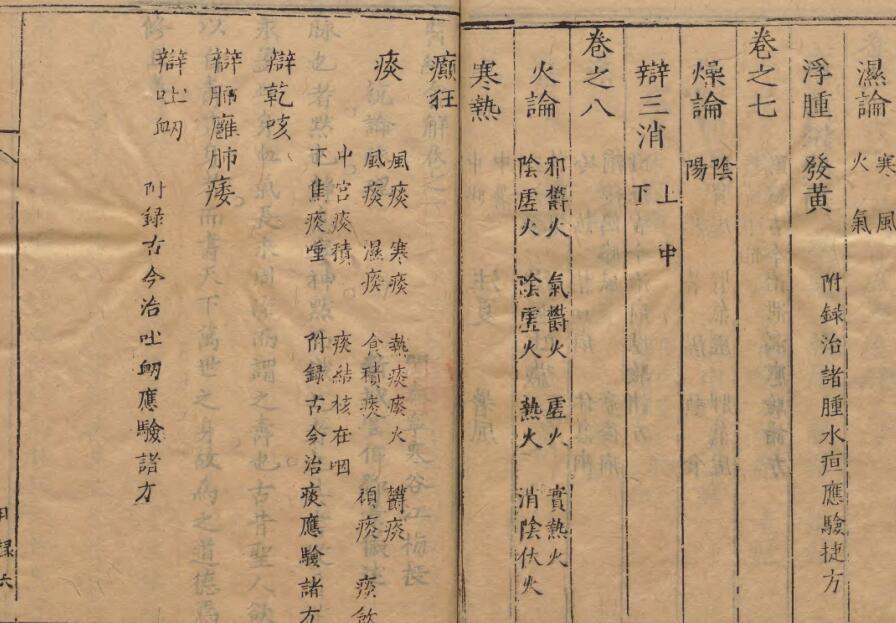 濕論 寒 風
火 氣
浮腫 發黃 附錄治諸腫水疸應驗捷方
卷之七
燥論 陰
陽
辯三消 上 中
下
卷之八
火論 邪欝火 氣欝火 虛火 實熱火
陰虛火 陰虛火 熱火 消陰伏火
寒熱
癲狂
痰 風痰 寒痰 熱痰痰火 欝痰
風痰 濕痰 食積痰 頑痰 痰飲
中宮痰積 痰結核在咽
下焦痰唾 附録古今治痰應驗諸方
辯乾咳
辯肺癰肺痿
辯吐衂
附録古今治吐衂應驗諸方
目録六